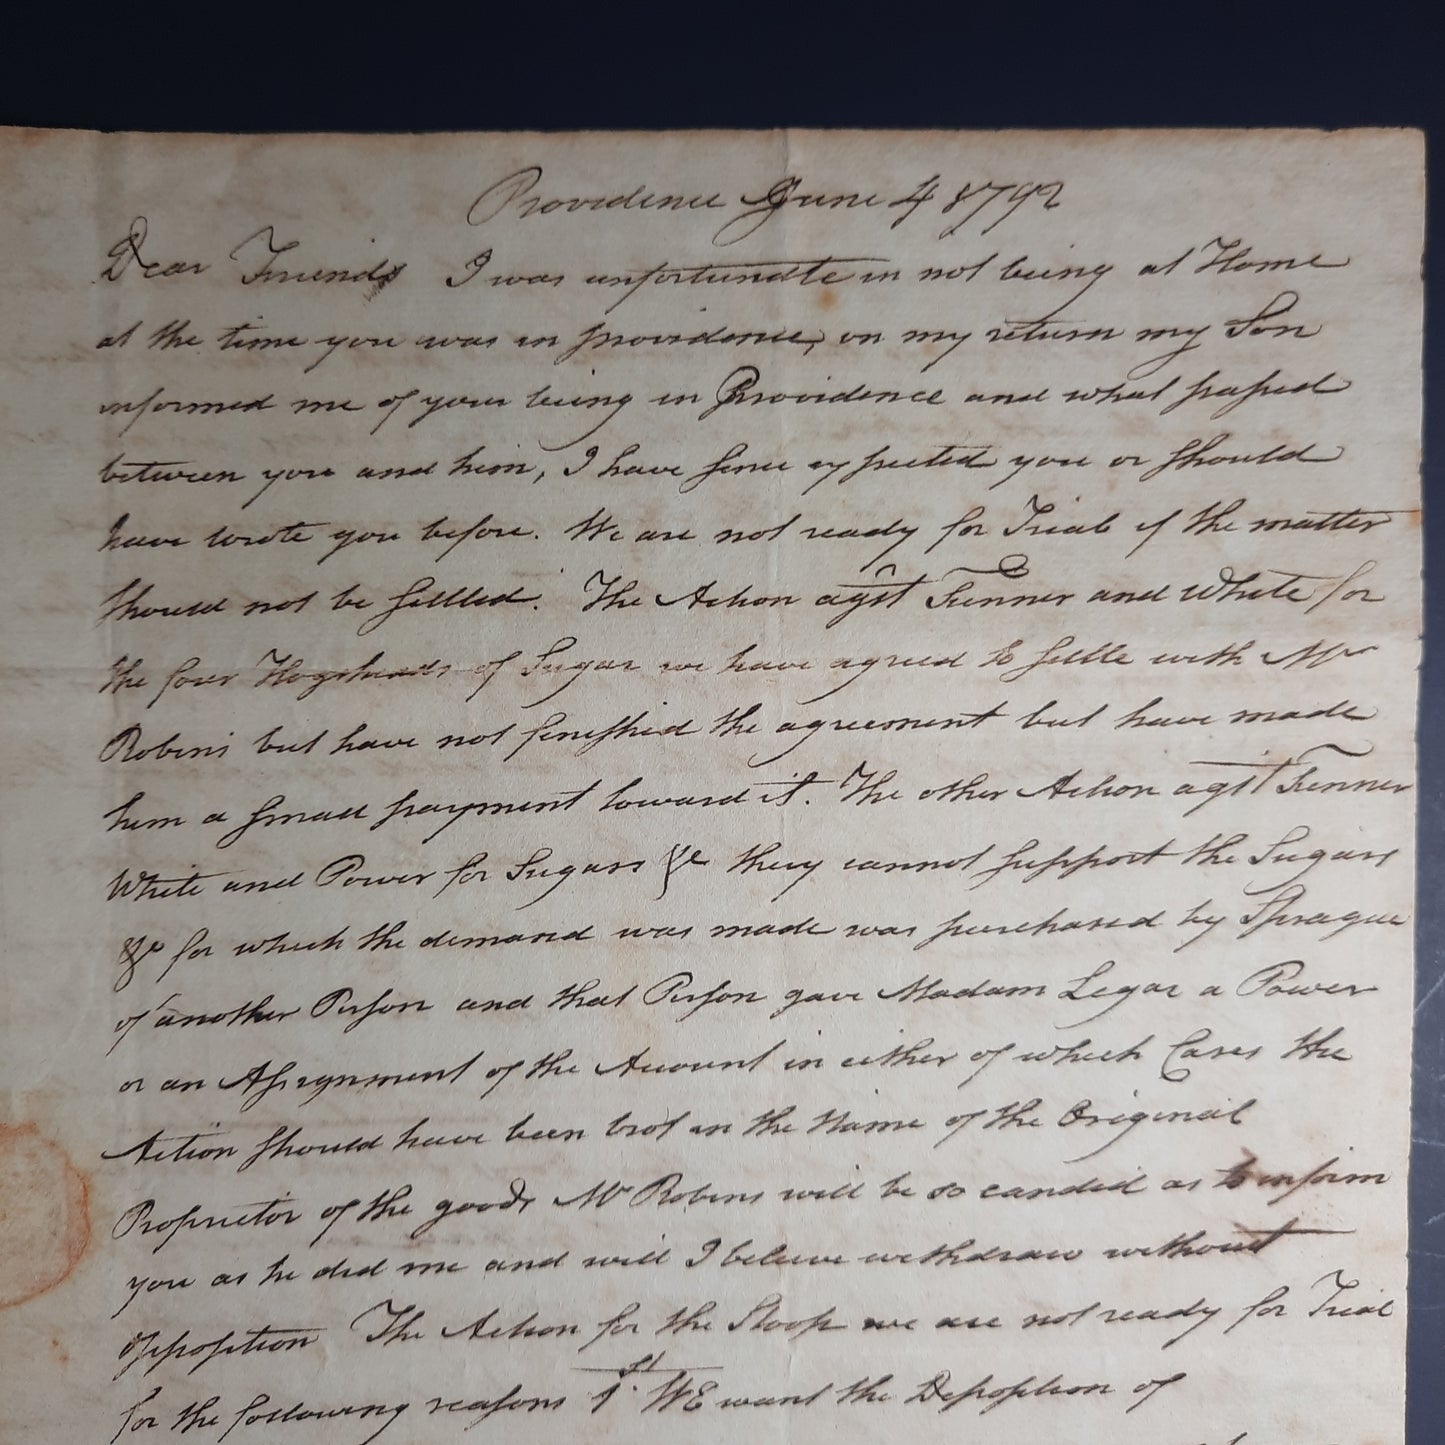 Providence June 4 1792
Dear Friends I was unfortunate in not being at Home
at the time you was in providence, on my return my Son
informed me of your being in Providence and what passed
between you and him, I have sence expected you or should
have wrote you before. We are not ready for Trial if the matter
should not be settled. The Action agst Tenner and White for
the four Hogsheads of Sugar we have agreed to settle with Mr
Robins but have not finished the agreement but have made
him a small payment toward it. The other Action agst Tenner
White and Power for Sugars &c they cannot support the Sugars
&c for which the demand was made was purchased by Sprague
of another Person and that Person gave Madam Legar a Power
or an Assignment of the Account in either of which Cases the
Action should have been brot in the Name of the Original
Proprietor of the goods Mr Robins will be so candid as to inform
you as he did me and will I beleive withdraw without
opposition The Action for the Sloop we are not ready for Trial
for the following reasons 1st WE want the Deposition of